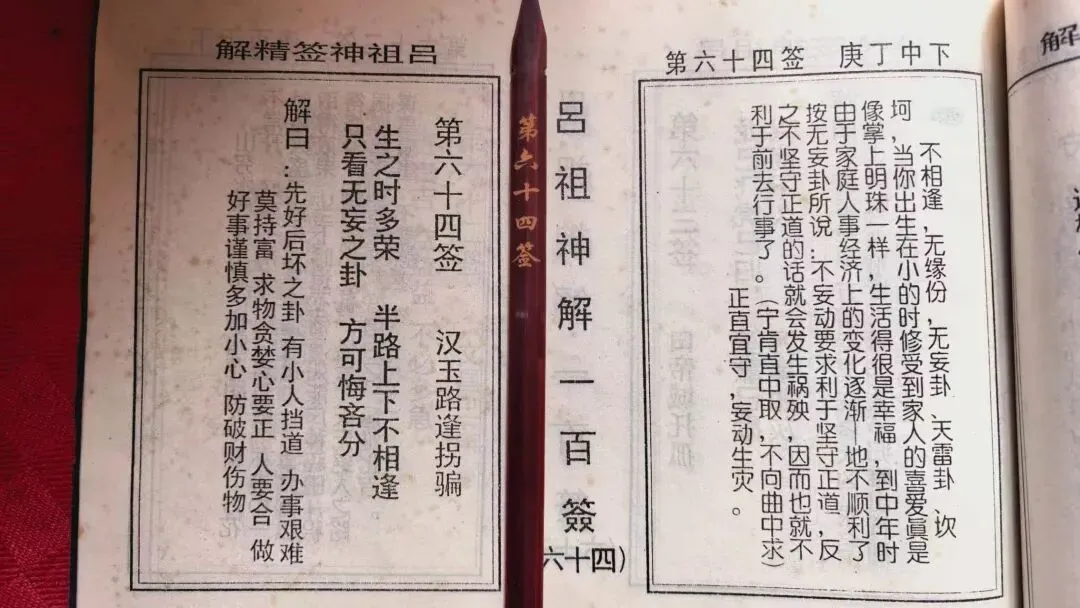 吕祖神签精解
第六十四签 汉玉路逢拐骗
生之时多荣 半路上下不相逢
只看无妄之卦 方可悔吝分
解曰:先好后坏之卦 有小人挡道 办事艰难
莫持富 求物贪婪心要正 人要合 做
好事谨慎多加小心 防破财伤物
第六十四签
吕祖神解一百簽
六十四)
第六十四签 庚丁中下
不相逢,无缘份,无妄卦、天雷卦、坎
坷,当你出生在小的时修受到家人的喜爱眞是
像掌上明珠一样,生活得很是幸福,到中年时
由于家庭人事经济上的变化逐渐一也不顺利了
按无妄卦所说:不妄动要求利于坚守正道,反
之不坚守正道的话就会发生祸殃,因而也就不
利于前去行事了。(宁肯直中取,不向曲中求)
正直宜守,妄动生灾。
解